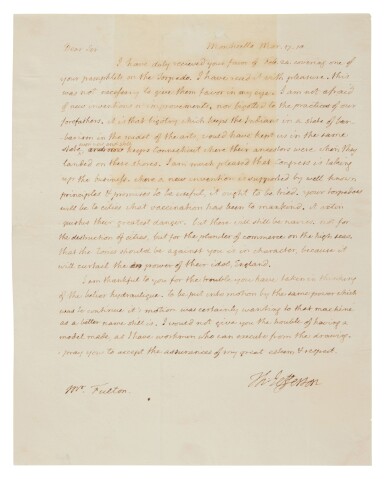 Dear Sir Monticello Mar. 17. 10.
I have duly recieved your favor of Feb. 24. covering one of
your pamphlets on the Torpedo. I have read it with pleasure. this
was not necessary to give them favor in my eye. I am not afraid
of new inventions or improvements, nor bigoted to the practices of our
forefathers. it is that bigotry which keeps the Indians in a state of bar-
barism in the midst of the arts, would have kept us in the same
state even now and still keeps Connecticut where their ancestors were when they
landed on these shores. I am much pleased that Congress is taking
up the business. where a new invention is supported by well known
principles & promises to be useful, it ought to be tried. your torpedoes
will be to cities what vaccination has been to mankind. it extin-
guishes their greatest danger. but there will still be navies. not for
the destruction of cities, but for the plunder of commerce on the high seas.
that the tories should be against you is in character, because it
will curtail the power of their idol, England.
I am thankful to you for the trouble you have taken in thinking
of the belier hydraulique. to be put into motion by the same power which
was to continue it's motion was certainly wanting to that machine
as a better name still is. I would not give you the trouble of having a
model made, as I have workmen who can execute from the drawing.
I pray you to accept the assurances of my great esteem & respect.
Th: Jefferson
Mr. Fulton.